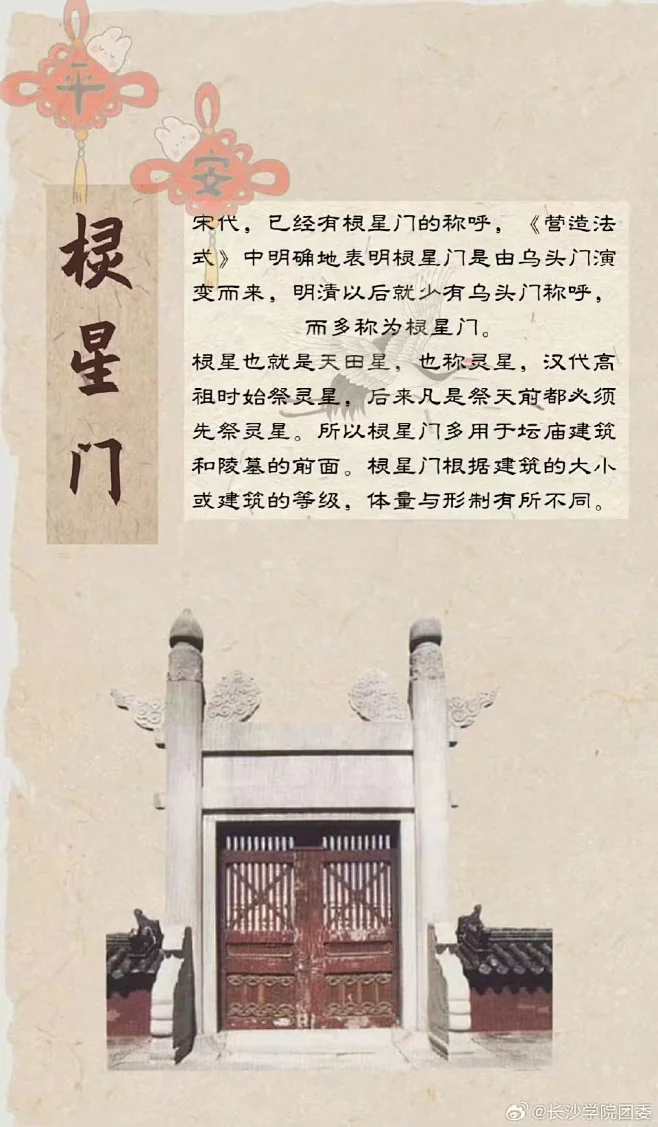 平
安
棂星门
宋代，已经有棂星门的称呼，《营造法
式》中明确地表明棂星门是由乌头门演
变而来，明清以后就少有乌头门称呼，
而多称为棂星门。
棂星也就是天田星，也称灵星，汉代高
祖时始祭灵星，后来凡是祭天前都必须
先祭灵星。所以棂星门多用于坛庙建筑
和陵墓的前面。棂星门根据建筑的大小
或建筑的等级，体量与形制有所不同。
@长沙学院团委